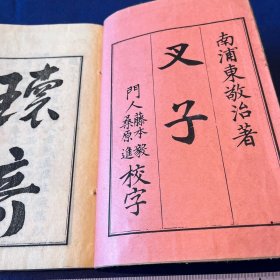 南浦東敬治著
叉子
門人 藤本毅 桑原進 校字
瓌奇